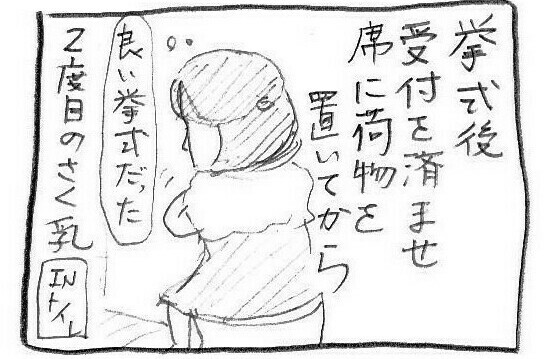 挙式後
受付を済ませ
席に荷物を
置いてから
良い挙式だった
2度目のさく乳
INトイレ